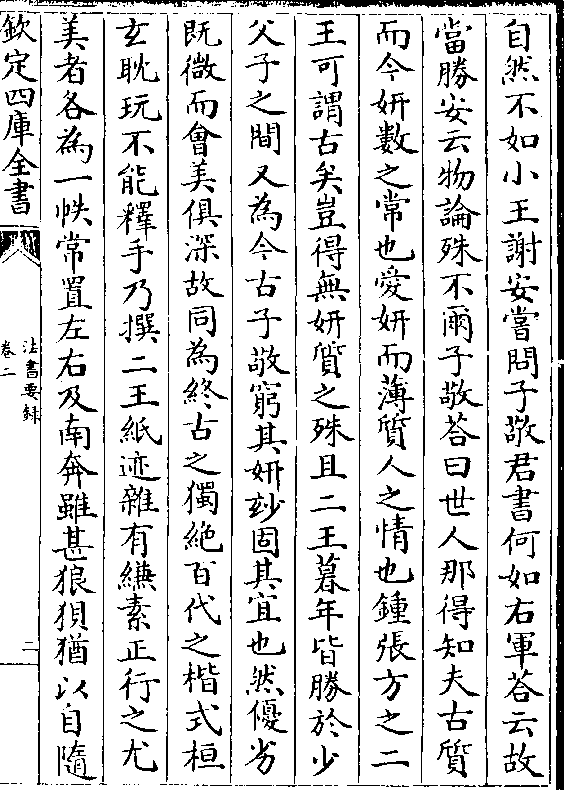 自然不如小王謝安嘗問子敬君書何如右軍荅云故
當勝安云物論殊不爾子敬荅曰世人那得知夫古質
而今妍數之常也愛妍而薄質人之情也鍾張方之二
王可謂古矣豈得無妍質之殊且二王暮年皆勝於少
父子之間又為今古子敬窮其妍玅固其宜也然優劣
既微而會美俱深故同為終古之獨絶百代之楷式桓
玄耽玩不能釋手乃撰二王紙迹雜有縑素正行之尤
美者各為一帙常置左右及南奔雖甚狼狽猶以自隨
欽定四庫全書
法書要録
卷二
二